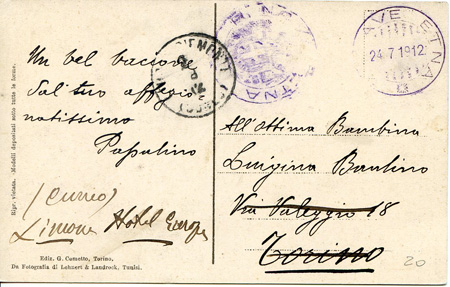 Un bel bacione
dal tuo affezio
natissimo
Papalino
(Cuneo)
Limone Hotel Europa
Ediz. G. Cometto, Torino.
Da Fotografia di Lehnert & Landrock, Tunisi.
Ripr. vietata. - Modelli depositati sotto tutte le forme.
ETNA
AVE ETNA
24.7.1912
All'Ottima Bambina
Luigina Bantino
Via Valeggio 18
Torino
20